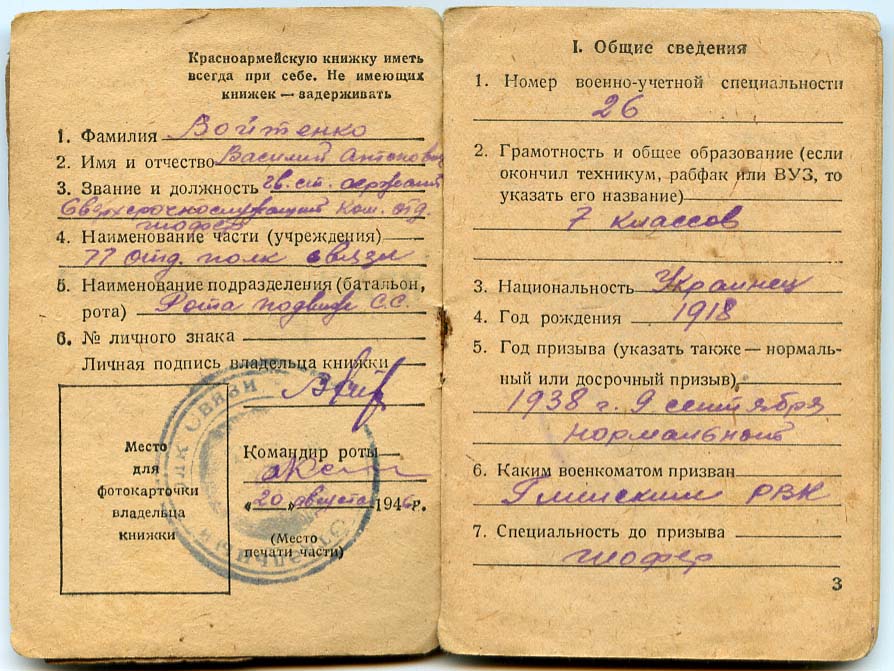 Красноармейскую книжку иметь
всегда при себе. Не имеющих
книжек — задерживать
1. Фамилия Войтенко
2. Имя и отчество Василий Антонович
3. Звание и должность гв. ст. сержант
Сверхсрочнослужащий ком. отд.
шофер
4. Наименование части (учреждения)
77 отд. полк связи
5. Наименование подразделения (батальон,
рота) Рота подвиж С.С.
6. № личного знака
Личная подпись владельца книжки
Место
для
фотокарточки
владельца
книжки
Командир роты
„20 августа 1946г.
(Место
печати части)
полк Связи
I. Общие сведения
1. Номер военно-учетной специальности
26
2. Грамотность и общее образование (если
окончил техникум, рабфак или ВУЗ, то
указать его название)
7 классов
3. Национальность Украинец
4. Год рождения 1918
5. Год призыва (указать также — нормаль-
ный или досрочный призыв)
1938 г. 9 сентября
нормальный
6. Каким военкоматом призван
РВК
7. Специальность до призыва
шофер
3